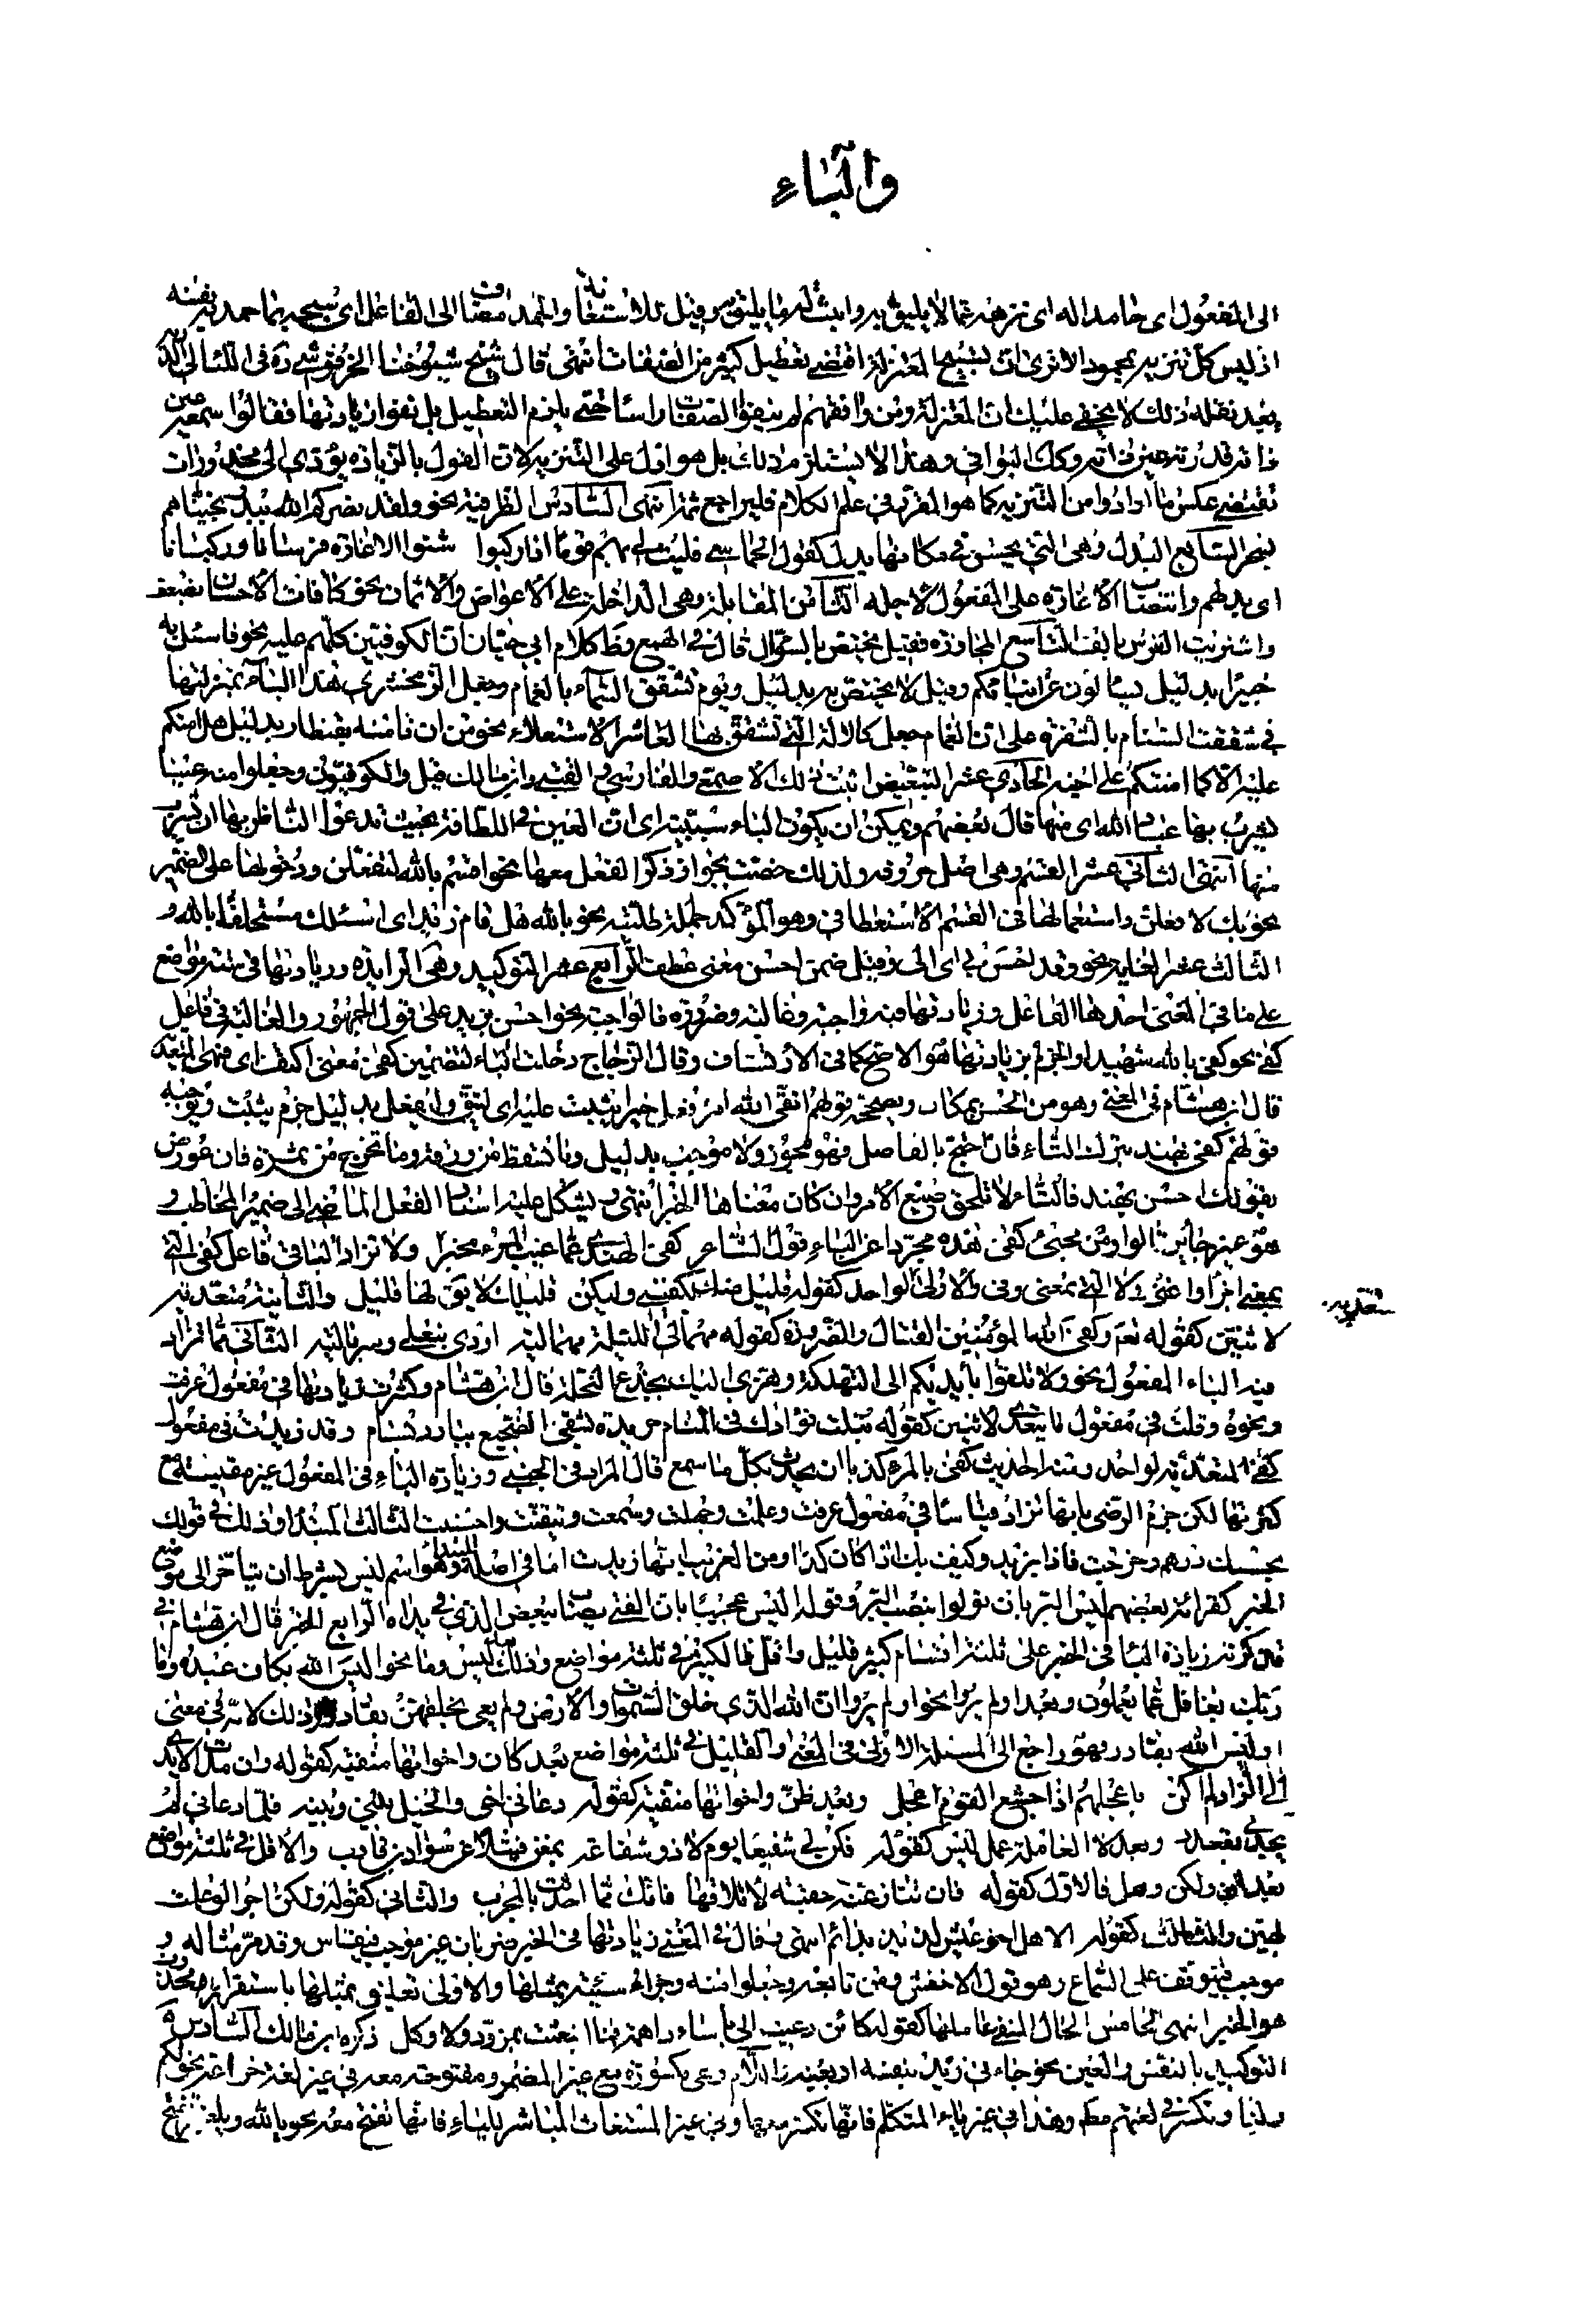 والباء
الى المفعول اى حامدا له اى نزهه عما لا يليق به واثبت له ما يليق به وقيل للاستعانة والحمد مضاف الى الفاعل اى سبحه بما حمد به نفسه
اذ ليس كل تنزيه بمحمود الا ترى ان تسبيح المعتزلة اقتضى تعطيل كثير من الصفات انتهى قال شيخ شيوخنا
بعد نقله ذلك لا يخفى عليك ان المعتزلة ومن وافقهم لم ينفوا الصفات راسا حتى يلزم التعطيل بل نفوا زيادتها فقالوا سمعه عين
ذاته قدرته عين ذاته وكك البواقى وهذا لا يستلزم ذلك بل هو ادل على التنزيه لان القول بالزيادة يؤدى الى محذورات
تقتضى عكس ما ارادوا من التنزيه كما هو المقرر فى علم الكلام فليراجع ثمة انتهى السادس الظرفية نحو ولقد نصركم الله ببدر نجيناهم
بسحر السابع البدل وهى التى يحسن فى مكانها بدل كقول الحماسى فليت لى بهم قوما اذا ركبوا شنوا الاغارة فرسانا وركبانا
اى بدلهم وانتصاب الاغارة على المفعول لاجله الثامن المقابلة وهى الداخلة على الاعواض والاثمان نحو كافات الاحسان بضعف
واشتريت الفرس بالف التاسع المجاوزة فقيل يختص بالسؤال قال فى الهمع وظ كلام ابى حيان ان الكوفيين كلهم عليه نحو فاسئل به
خبيرا بدليل يسالون عن انبائكم وقيل لا يختص به بدليل ويوم تشقق السماء بالغمام وجعل الزمخشرى هذه الباء بمنزلتها
فى شققت السنام بالشفرة على ان الغمام جعل كالالة التى تشقق بها العاشر الاستعلاء نحو من ان تامنه بقنطار بدليل هل امنكم
عليه الا كما امنتكم على اخيه الحادى عشر التبعيض اثبت ذلك الاصمعى والفارسى والقتبى وابن مالك قيل والكوفيون وجعلوا منه عينا
يشرب بها عباد الله اى منها قال بعضهم ويمكن ان يكون الباء سببية اى ان العين فى اللطافة بحيث تدعوا الناظر بها ان يشرب
منها انتهى الثانى عشر القسم وهى اصل حروفه ولذلك خصت بجواز ذكر الفعل معها نحو اقسم بالله لتفعلن ودخولها على الضمير
نحو بك لافعلن واستعمالها فى القسم الاستعطافى وهو المؤكد جملة طلبية نحو بالله هل قام زيد اى اسئلك مستحلفا بالله و
الثالث عشر الغاية نحو وقد احسن بى اى الى وقيل ضمن احسن معنى لطف الرابع عشر التوكيد وهى الزايدة وزيادتها فى ستة مواضع
على ما فى المغنى احدها الفاعل وزيادتها فيه واجبة وغالبة وضرورة فالواجبة نحو احسن بزيد على قول الجمهور والغالبة فى فاعل
كفى نحو كفى بالله شهيدا والجزم بزيادتها هو الاصح كما فى الارتشاف وقال الزجاج دخلت الباء لتضمين كفى معنى اكتف
قال ابن هشام فى المغنى وهو من الحسن بمكان ويصححه قولهم اتقى الله امرؤ فعل خيرا يثب عليه اى ليتق وليفعل بدليل جزم يثب ويوجبه
قولهم كفى بهند بترك التاء فان احتج بالفاصل فهو مجوز ولا موجب بدليل وما تسقط من ورقة وما تخرج من ثمرة فان عورض
بقولك احسن بهند فالتاء لا تلحق صيغ الامر وان كان معناها الخبر انتهى ويشكل عليه اسناد الفعل الماضى الى ضمير المخاطب و
هو غير جايز قالوا ومن مجئ كفى هذه مجردا عن الباء قول الشاعر كفى الهندى عما غيب المرء مخبرا ولا تزاد الباء فى فاعل كفى التى
بمعنى اجزا واغنى ولا التى بمعنى وقى والاولى لواحد كقوله قليل منك يكفينى ولكن قليلك لا يقال له قليل والثانية متعدية
متعدية
لاثنين كقوله تع وكفى الله المؤمنين القتال والضرورة كقوله مهما لى الليلة مهما ليه اودى بنعلى وسرباليه الثانى مما تزاد
فيه الباء المفعول نحو ولا تلقوا بايديكم الى التهلكة وهزى اليك بجذع النخلة قال ابن هشام وكثرت زيادتها فى مفعول عرفت
ونحوه وقلت فى مفعول ما يتعدى لاثنين كقوله تبلت فؤادك فى المنام خريدة تسقى الضجيع ببارد بسام وقد زيدت فى مفعول
كفى المتعدية لواحد ومنه الحديث كفى بالمرء كذبا ان يحدث بكل ما سمع قال المرادى فى الجنى وزيادة الباء فى المفعول غير مقيسة مع
كثرتها لكن جزم الرضى بانها تزاد قياسا فى مفعول عرفت وعلمت وجهلت وسمعت وتيقنت واحسست الثالث المبتدا وذلك فى قولك
بحسبك درهم وخرجت فاذا بزيد وكيف بك اذا كان كذا ومن الغريب انها زيدت اما فى اصله المبتدا وهو اسم ليس بشرط ان يتاخر الى موضع
الخبر كقراءة بعضهم ليس البر بان تولوا بنصب البر وقوله اليس عجيبا بان الفتى يصاب ببعض الذى فى يداه الرابع الخبر قال ابن هشام فى
زيادة الباء فى الخبر على ثلثة اقسام كثير قليل واقل فالكثير فى ثلثة مواضع وذلك ليس وما نحو اليس الله بكاف عبده وما
ربك بغافل عما يعملون وبعد اولم يروا نحو اولم يروا ان الله الذى خلق السموات والارض ولم يعى بخلقهن بقادر وذلك لانه فى معنى
اوليس الله بقادر وهو راجع الى المسئلة الاولى فى المغنى والقليل فى ثلثة مواضع بعد كان واخواتها منفية كقوله وان مدت الايدى
الى الزاد لم اكن باعجلهم اذا جشع القوم اعجل وبعد ظن واخواتها منفية كقوله دعانى اخى والخيل بينى وبينه فلما دعانى لم
يجدنى بقعدد وبعد لا العاملة عمل ليس كقوله فكن لى شفيعا يوم لا ذو شفاعة بمغن فتيلا عن سواد بن قارب والاقل فى ثلثة مواضع
بعد ان ولكن وهل فالاول كقوله فان تنا عنها حقبة لا تلاقها فانك مما احدثت بالمجرب والثانى كقوله ولكن اجرا لو فعلت
بهين والثالث كقوله الا هل اخو عيش لذيذ بدائم انتهى وقال فى المغنى زيادتها فى الخبر ضربان غير موجب فيقاس وقد مر مثاله و
موجب فيتوقف على السماع وهو قول الاخفش ومن تابعه وجعلوا منه وجزاء سيئة بمثلها والاولى تعليق بمثلها باستقرار محذوف
هو الخبر انتهى الخامس الحال المنفى عاملها كقوله كائن دعيت الى باساء داهمة فما انبعثت بمزؤد ولا وكل ذكره ابن مالك السادس
التوكيد بالنفس والعين نحو جاءنى زيد بنفسه او بعينه واللام وهى مكسورة مع غير المضمر ومفتوحة معه فى غير لغة خزاعة نحو لكم
ولنا وتكسر فى لغتهم مط وهذا فى غير ياء المتكلم فانها تكسر معها وفى غير المستغاث المباشر للياء فانها تفتح معه نحو يا لله